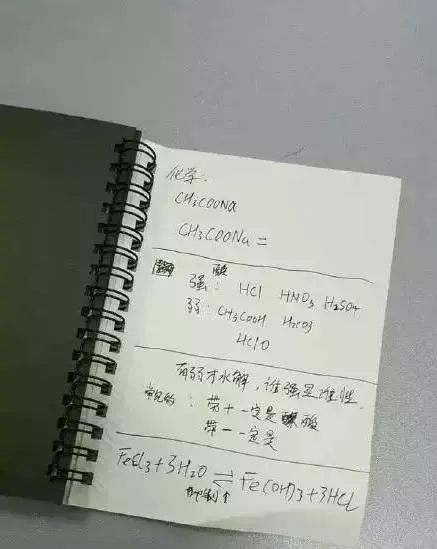 化学：
CH3COONa
CH3COONa =
酸
强： HCl HNO3 H2SO4
弱： CH3COOH H2CO3
HClO
有弱才水解，谁强显谁性.
常见的： 带+一定是酸
带-一定是
FeCl3+3H2O ⇌ Fe(OH)3+3HCl
抑制↑